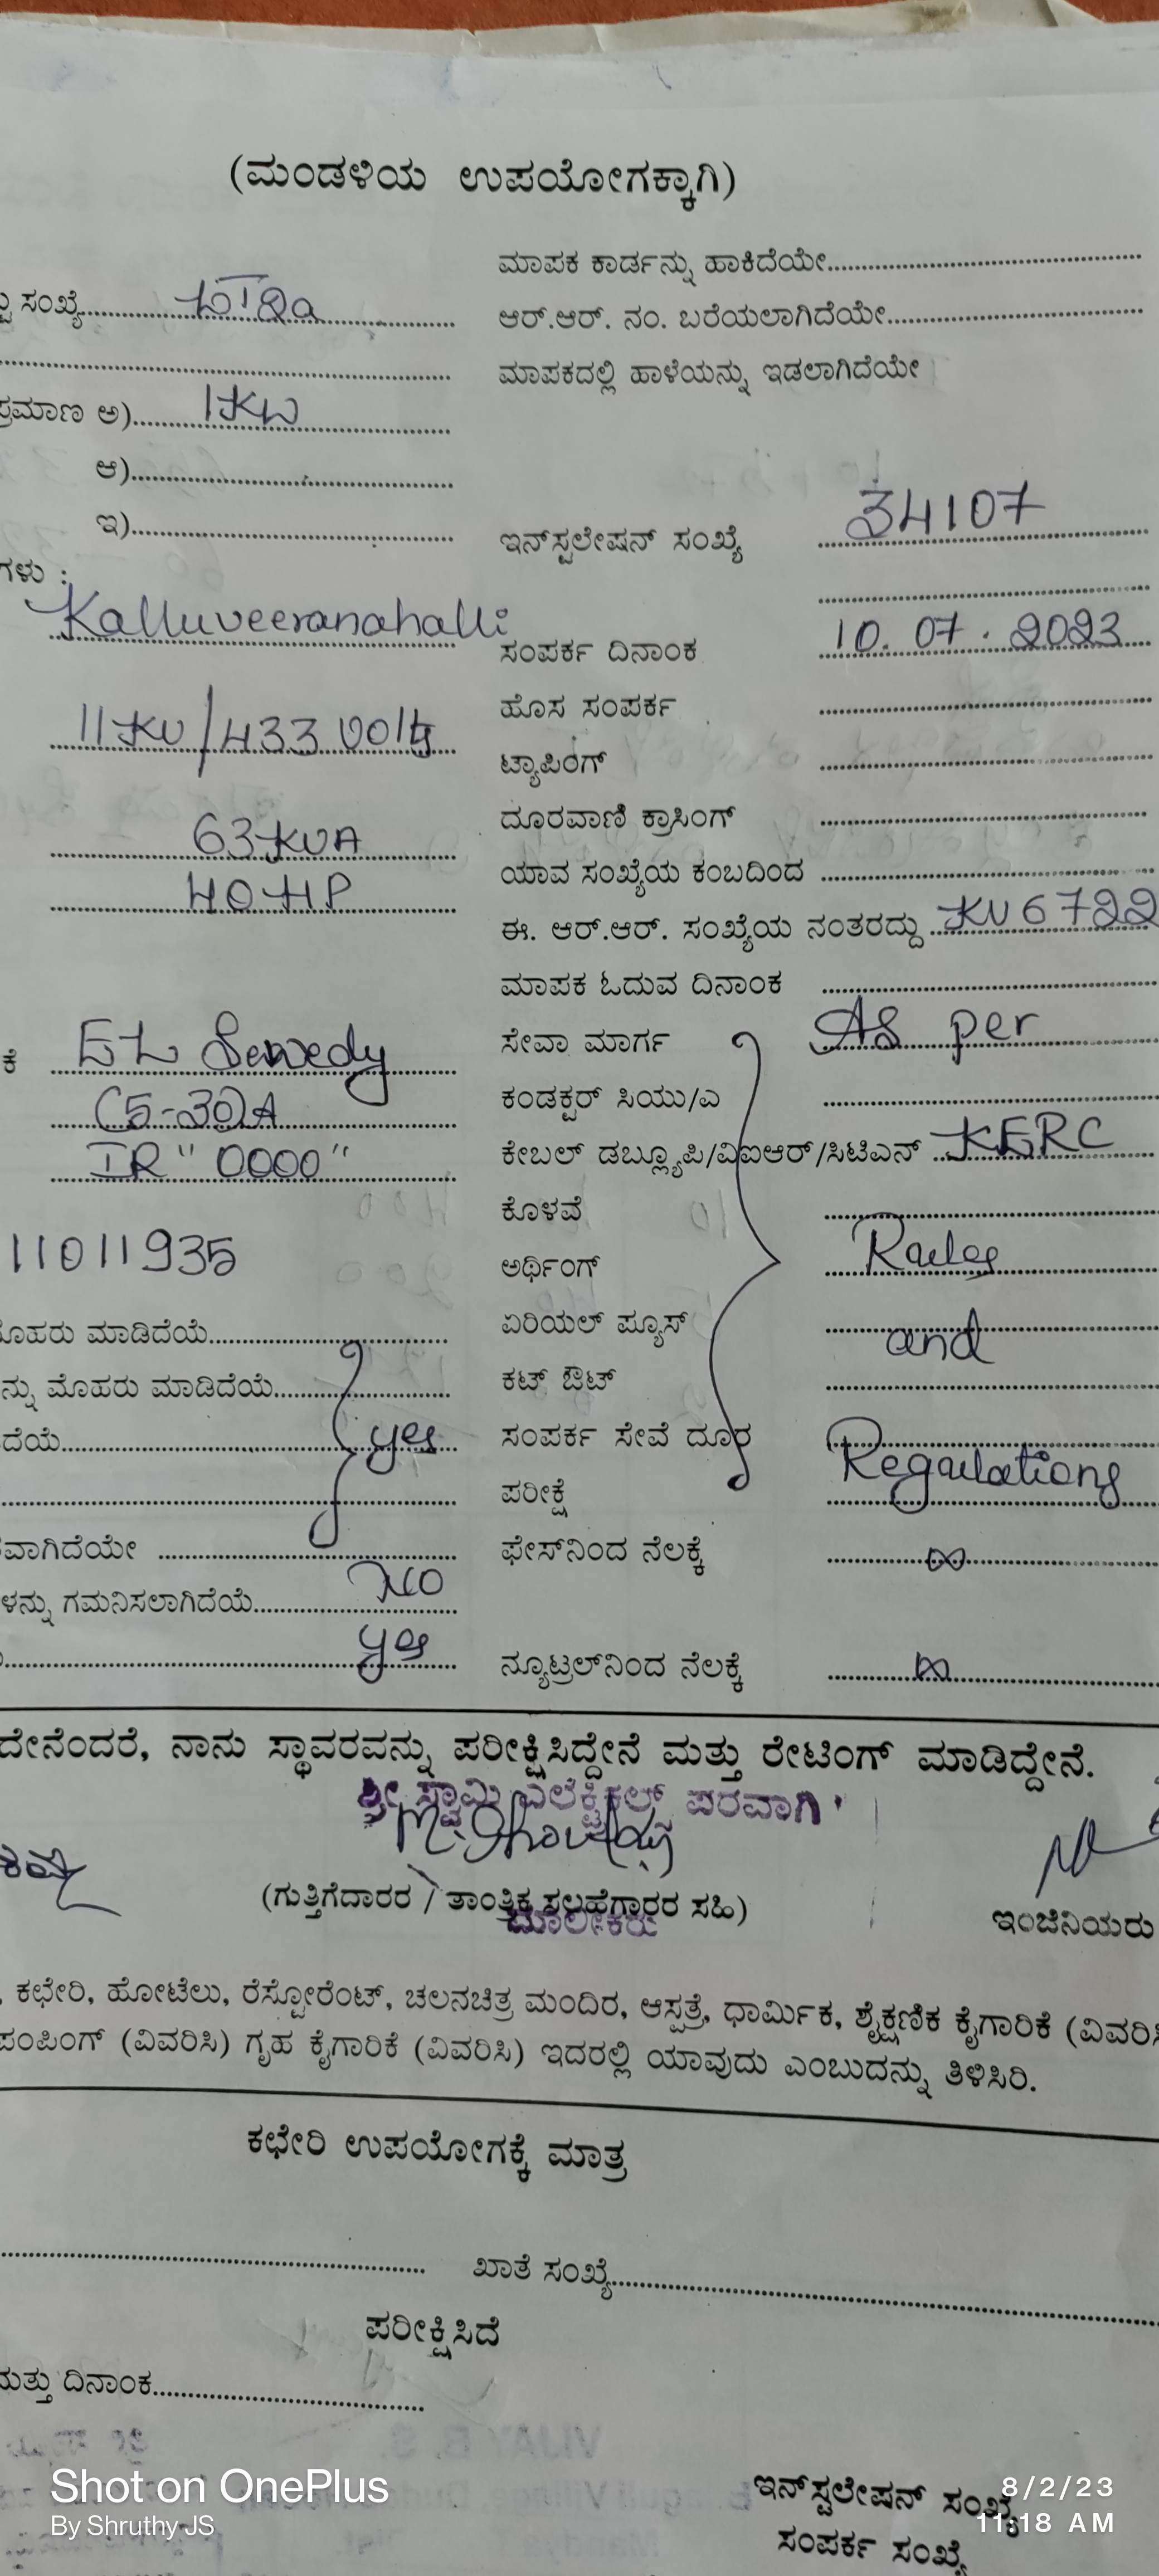 (ಮಂಡಳಿಯ ಉಪಯೋಗಕ್ಕಾಗಿ)
ಮಾಪಕ ಕಾರ್ಡನ್ನು ಹಾಕಿದೆಯೇ
ಸಂಖ್ಯೆ
ಆರ್.ಆರ್. ನಂ. ಬರೆಯಲಾಗಿದೆಯೇ
ಮಾಪಕದಲ್ಲಿ ಹಾಳೆಯನ್ನು ಇಡಲಾಗಿದೆಯೇ
ಪ್ರಮಾಣ ಅ) 1KW
ಆ)
ಇ)
ಇನ್‌ಸ್ಟಲೇಷನ್ ಸಂಖ್ಯೆ 34107
ಗಳು :
Kalluveeranahalli
ಸಂಪರ್ಕ ದಿನಾಂಕ 10.07.2023
ಹೊಸ ಸಂಪರ್ಕ
11KV/433 Volts
ಟ್ಯಾಪಿಂಗ್
ದೂರವಾಣಿ ಕ್ರಾಸಿಂಗ್
63KVA
ಯಾವ ಸಂಖ್ಯೆಯ ಕಂಬದಿಂದ
40HP
ಈ. ಆರ್.ಆರ್. ಸಂಖ್ಯೆಯ ನಂತರದ್ದು KV6722
ಮಾಪಕ ಓದುವ ದಿನಾಂಕ
ಕೆ EL Sewedy
ಸೇವಾ ಮಾರ್ಗ As per
(5-30)A
ಕಂಡಕ್ಟರ್ ಸಿಯು/ಎ
IR "0000"
ಕೇಬಲ್ ಡಬ್ಲ್ಯೂಪಿ/ವಿಐಆರ್/ಸಿಟಿಎನ್ KERC
ಕೊಳವೆ
11011935
ಅರ್ಥಿಂಗ್ Rules
ಮೊಹರು ಮಾಡಿದೆಯೆ
ಏರಿಯಲ್ ಪ್ಯೂಸ್ and
ನ್ನು ಮೊಹರು ಮಾಡಿದೆಯೆ
ಕಟ್ ಔಟ್
ದೆಯೆ yes
ಸಂಪರ್ಕ ಸೇವೆ ದೂರ Regulations
ಪರೀಕ್ಷೆ
ವಾಗಿದೆಯೇ
ಫೇಸ್‌ನಿಂದ ನೆಲಕ್ಕೆ ∞
ಳನ್ನು ಗಮನಿಸಲಾಗಿದೆಯೆ No
yes
ನ್ಯೂಟ್ರಲ್‌ನಿಂದ ನೆಲಕ್ಕೆ ∞
ದೇನೆಂದರೆ, ನಾನು ಸ್ಥಾವರವನ್ನು ಪರೀಕ್ಷಿಸಿದ್ದೇನೆ ಮತ್ತು ರೇಟಿಂಗ್ ಮಾಡಿದ್ದೇನೆ.
ಶ್ರೀ ಸ್ವಾಮಿ ಎಲೆಕ್ಟ್ರಿಕಲ್ಸ್ ಪರವಾಗಿ
(ಗುತ್ತಿಗೆದಾರರ / ತಾಂತ್ರಿಕ ಸಲಹೆಗಾರರ ಸಹಿ)
ಮಾಲೀಕರು
ಇಂಜಿನಿಯರು
, ಕಛೇರಿ, ಹೋಟೆಲು, ರೆಸ್ಟೋರೆಂಟ್, ಚಲನಚಿತ್ರ ಮಂದಿರ, ಆಸ್ಪತ್ರೆ, ಧಾರ್ಮಿಕ, ಶೈಕ್ಷಣಿಕ ಕೈಗಾರಿಕೆ (ವಿವರಿಸಿ
ಪಂಪಿಂಗ್ (ವಿವರಿಸಿ) ಗೃಹ ಕೈಗಾರಿಕೆ (ವಿವರಿಸಿ) ಇದರಲ್ಲಿ ಯಾವುದು ಎಂಬುದನ್ನು ತಿಳಿಸಿರಿ.
ಕಛೇರಿ ಉಪಯೋಗಕ್ಕೆ ಮಾತ್ರ
ಖಾತೆ ಸಂಖ್ಯೆ
ಪರೀಕ್ಷಿಸಿದೆ
ಮತ್ತು ದಿನಾಂಕ
ಇನ್‌ಸ್ಟಲೇಷನ್ ಸಂಖ್ಯೆ
ಸಂಪರ್ಕ ಸಂಖ್ಯೆ
Shot on OnePlus
By Shruthy JS
8/2/23
11:18 AM